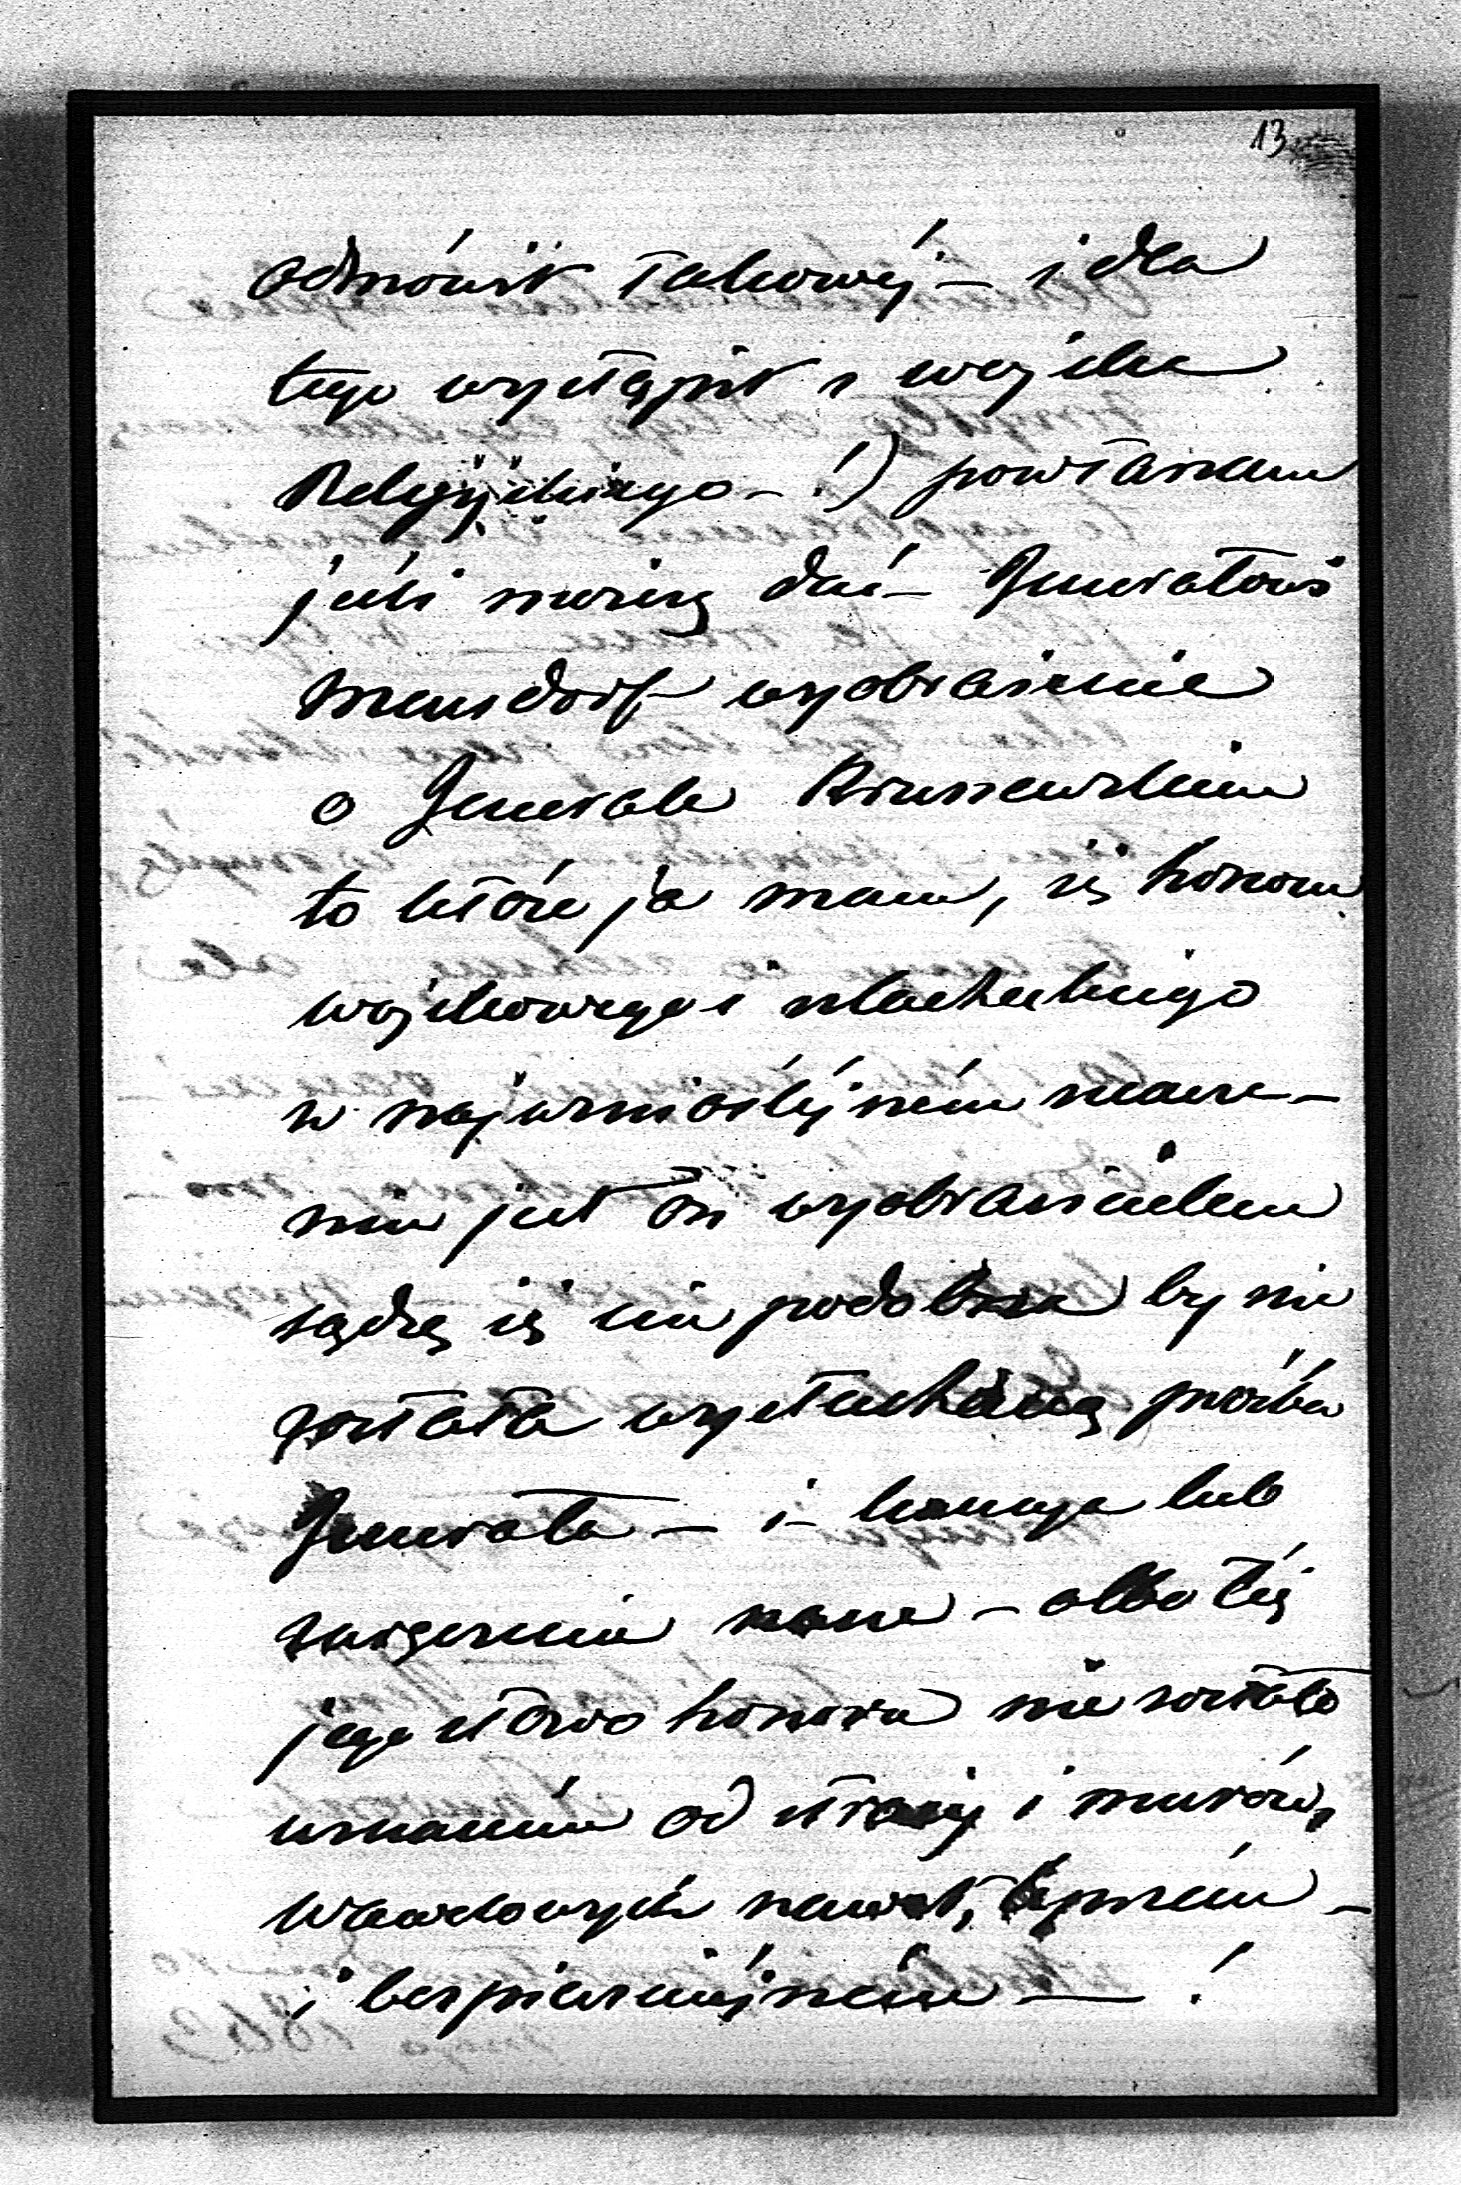 13
odmówił takowéj — i dla
tego wystąpił z wojska
Belgijskiego — !) powtarzam
jeśli możesz dać — Generałowi
Mensdorf wyobrażenie
o Generale Kruszewskim
to które ja mam, iż honoru
wojskowego i szlacheckiego
w najwznioślejszém znacze-
niu jest on wyobrazicielem
sądzę iż nie podobna by nie
została wysłuchaną prośba
Generała — i kaucya lub
zaręczenie nasze — albo téż
jego słowo honoru nie zostało
uznaném od straży i murów,
Wawelowych nawet, lepszém —
i bezpieczniejszém — !